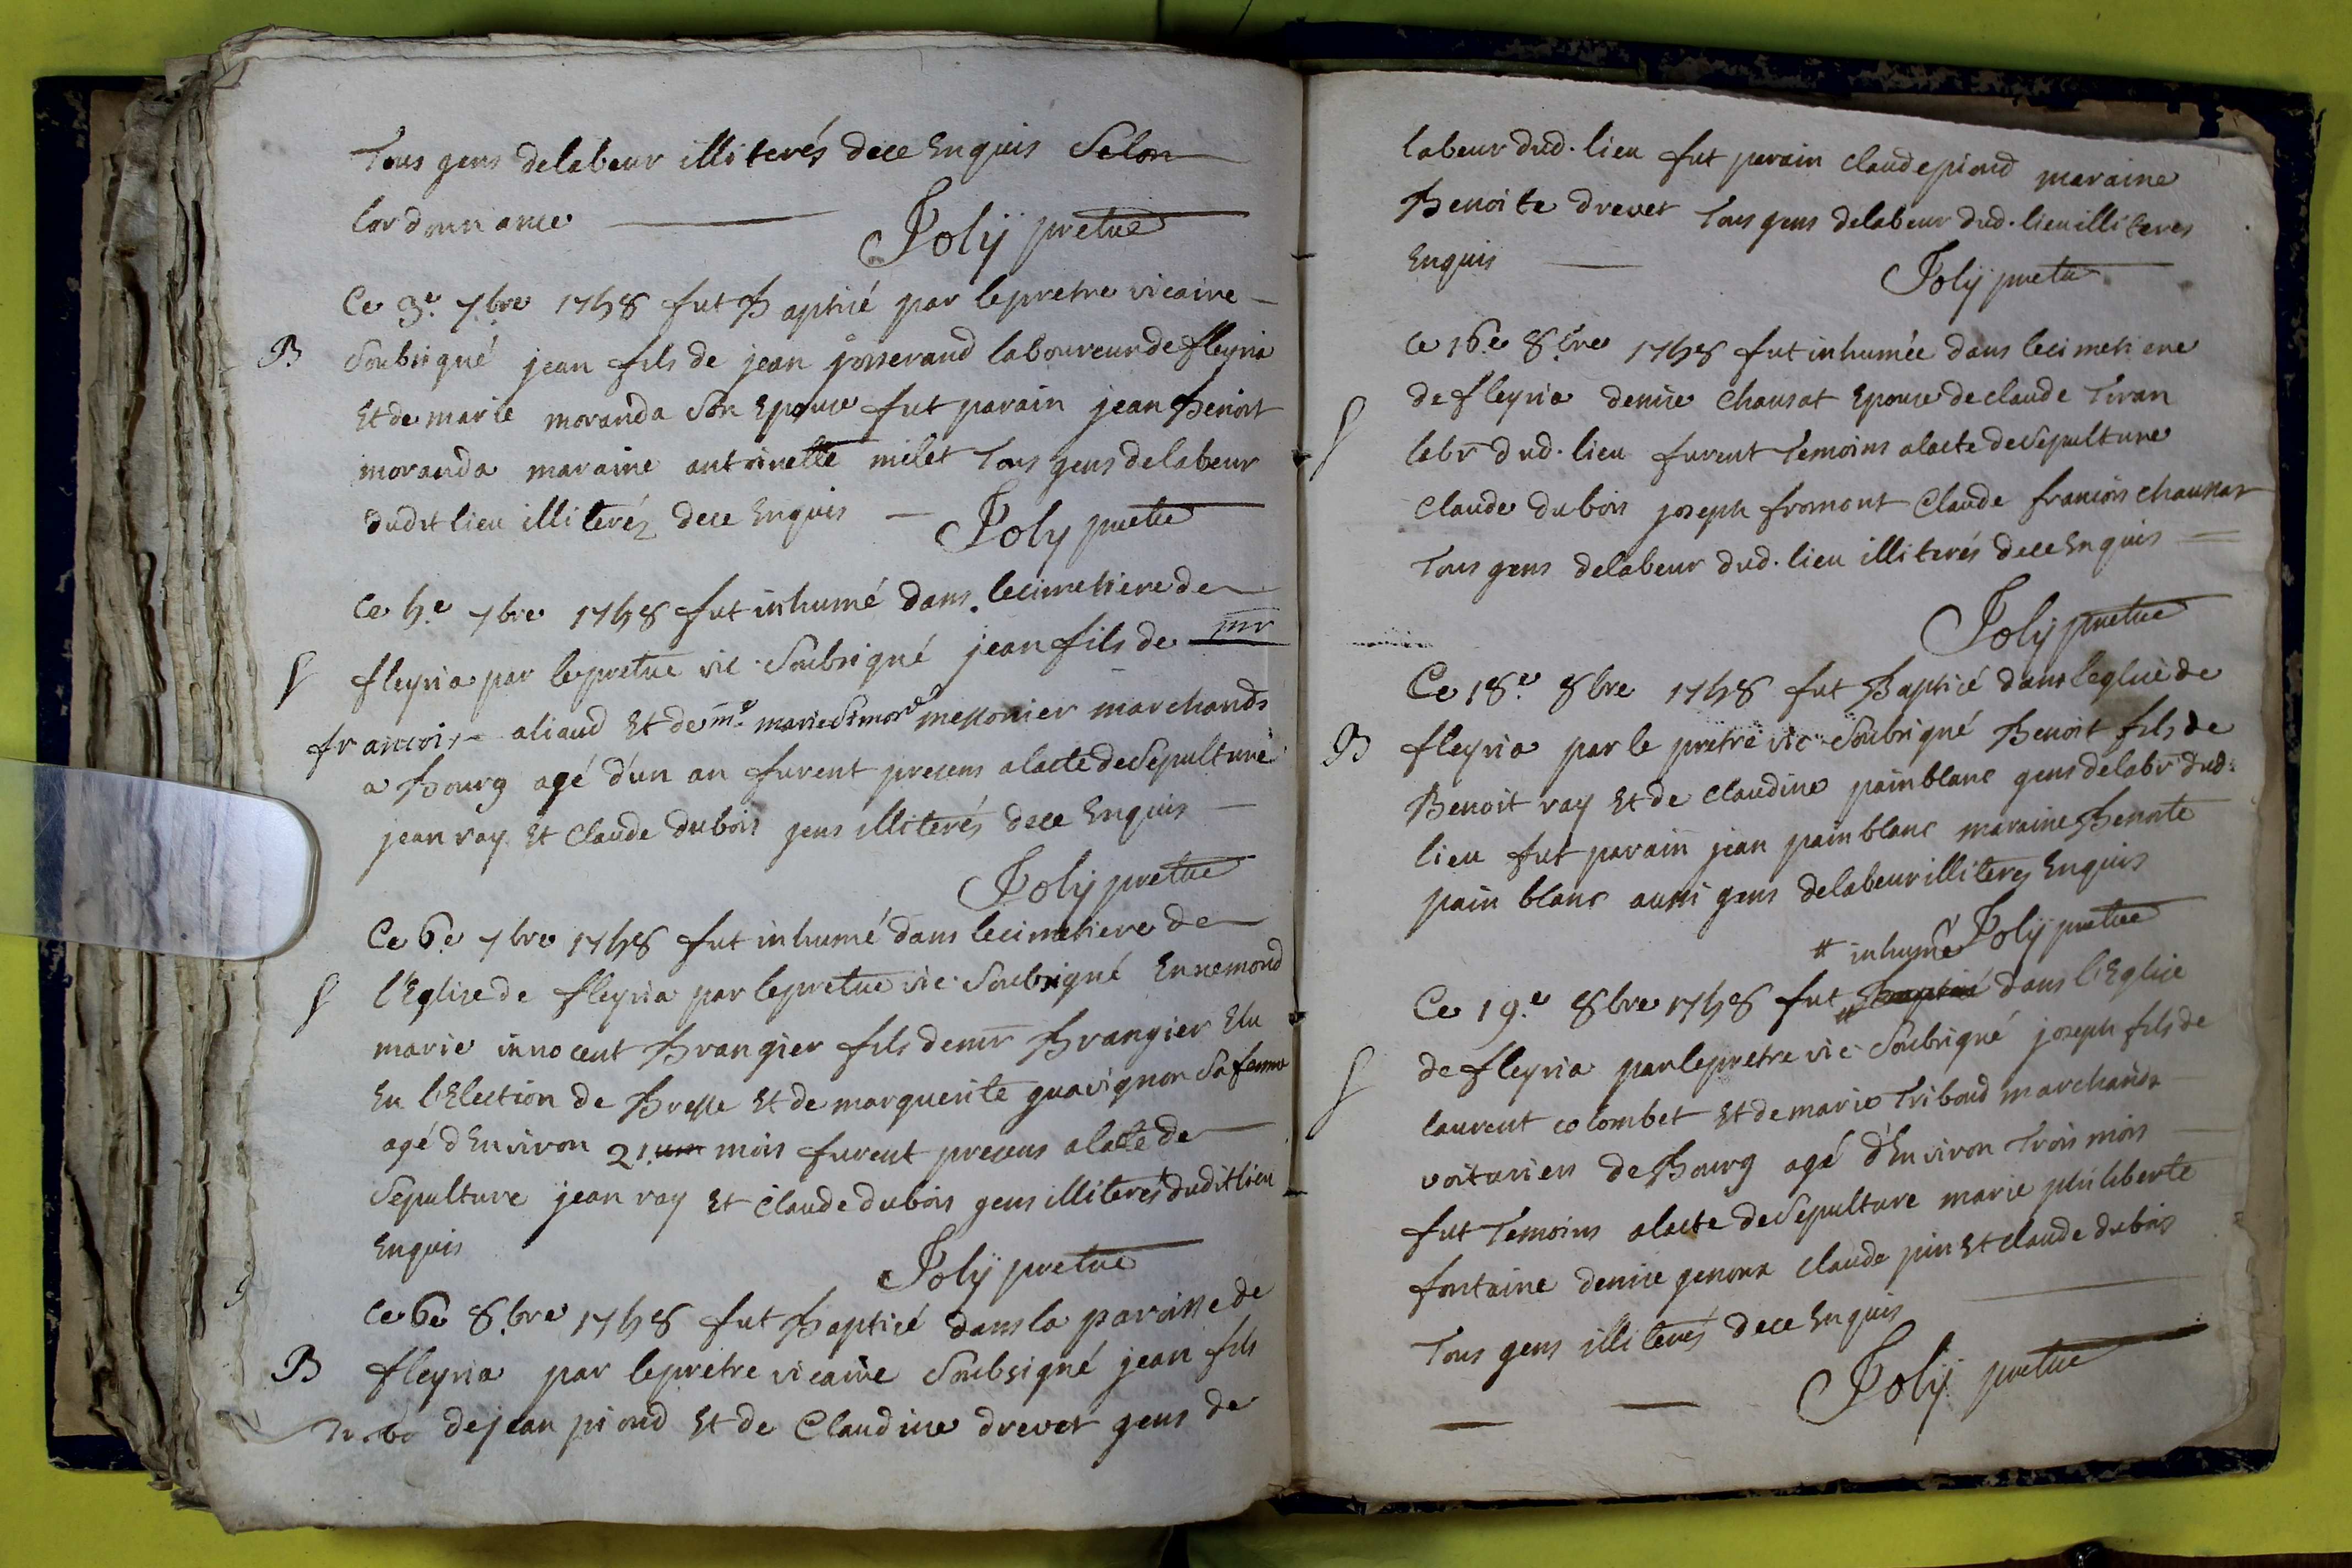 Tous gens delabeur illiterés dece Enquis Selon
lordonnance Joly pretre
Ce 3e 7bre 1748 fut Baptisé par lepretre vicaire
B Soubsigné jean fils de jean josserand laboureur de fleyria
Et de marie moranda Son Epouse fut parain jean Benoit
moranda maraine antoinette milet Tous gens delabeur
dudit lieu illiterés dece Enquis Joly pretre
Ce 4e 7bre 1748 fut inhumé dans lecimetiere de
S fleyria par lepretre vic. Soubsigné jean fils de mr
francois aliaud Et de me marie Simone messonier marchands
a Bourg agé d'un an furent presens alacte deSepulture
jean ray Et Claude dubois gens illiterés dece Enquis
Joly pretre
Ce 6e 7bre 1748 fut inhumé dans lecimetiere de
S l'Eglise de fleyria par lepretre vic. Soubsigné Ennemond
marie innocent Brangier fils demr Brangier Elu
En l'Election de Bresse Et de marguerite guavignon Sa femme
agé d'Environ 21 mois furent presens alacte de
Sepulture jean ray Et Claude dubois gens illiterés dudit lieu
Enquis Joly pretre
Ce 6e 8bre 1748 fut Baptisé dans la paroisse de
B fleyria par lepretre vicaire Soubsigné jean fils
dejean piond Et de Claudine drevet gens de
labeur dud. lieu fut parain claude piond maraine
Benoite drevet Tous gens delabeur dud. lieu illiteres
Enquis Joly pretre
Ce 16e 8bre 1748 fut inhumée dans lecimetiere
de fleyria denise Chausat Epouse de claude Tiran
S labr dud. lieu furent Temoins alacte deSepulture
Claude dubois joseph fromont Claude francois chausat
Tous gens delabeur dud. lieu illiterés dece Enquis
Joly pretre
Ce 18e 8bre 1748 fut Baptisé dans leglise de
B fleyria par le pretre vic. Soubsigné Benoit fils de
Benoit ray Et de claudine painblanc gens delabr dud.
lieu fut parain jean painblanc maraine Benoite
pain blanc aussi gens delabeur illiteres Enquis
# inhumé Joly pretre
Ce 19e 8bre 1748 fut # Baptisé dans l'Eglise
S de fleyria par lepretre vic. Soubsigné joseph fils de
laurent colombet Et de marie Triboud marchands
voituriers de Bourg agé d'Environ Trois mois
fut Temoins alacte deSepulture marie philiberte
fontaine denise genoux claude pin Et claude dubois
Tous gens illiterés dece Enquis
Joly pretre